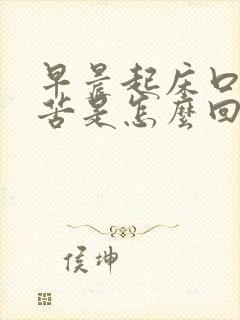 早晨起床口
苦是怎麼回
侯坤